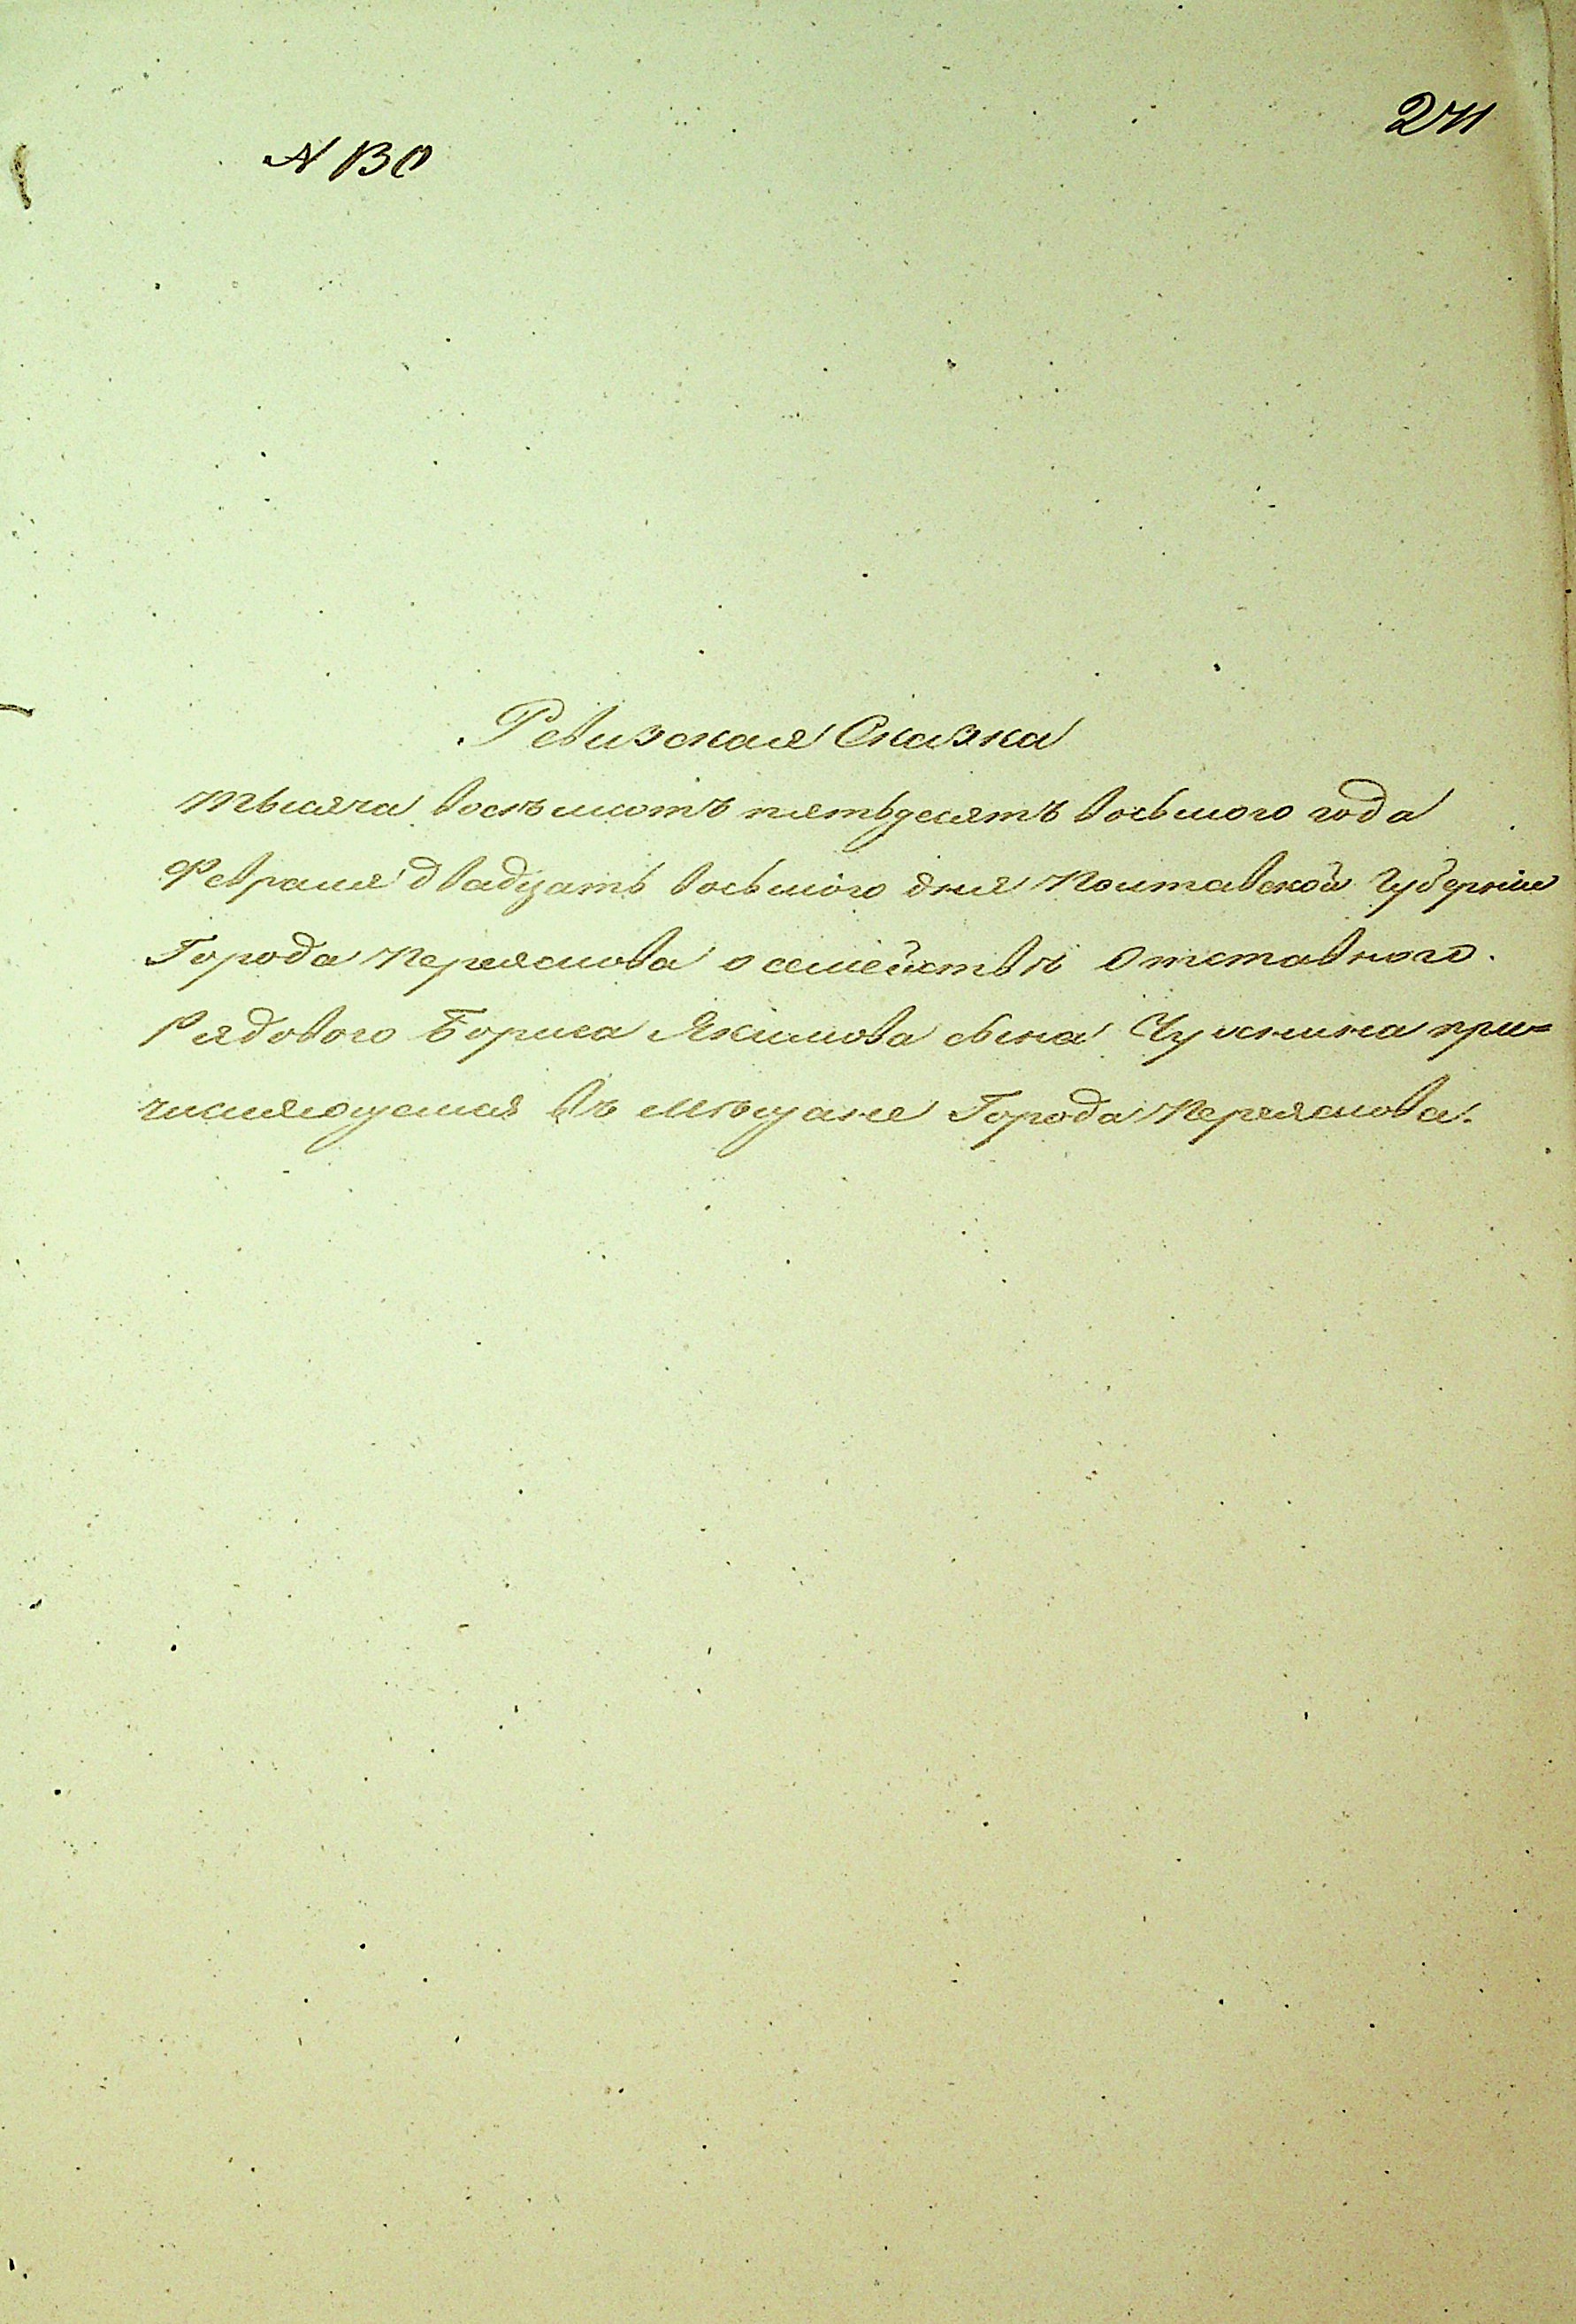 N 130
271
Ревизская Сказка
Тысяча восемьсотъ пятьдесятъ восьмого года
Февраля двадцать восьмого дня Полтавской Губерніи
Города Переяслова о семействѣ Отставного
Рядового Бориса Якимова сына при=
числяющемся въ мѣщане Города Переяслова.